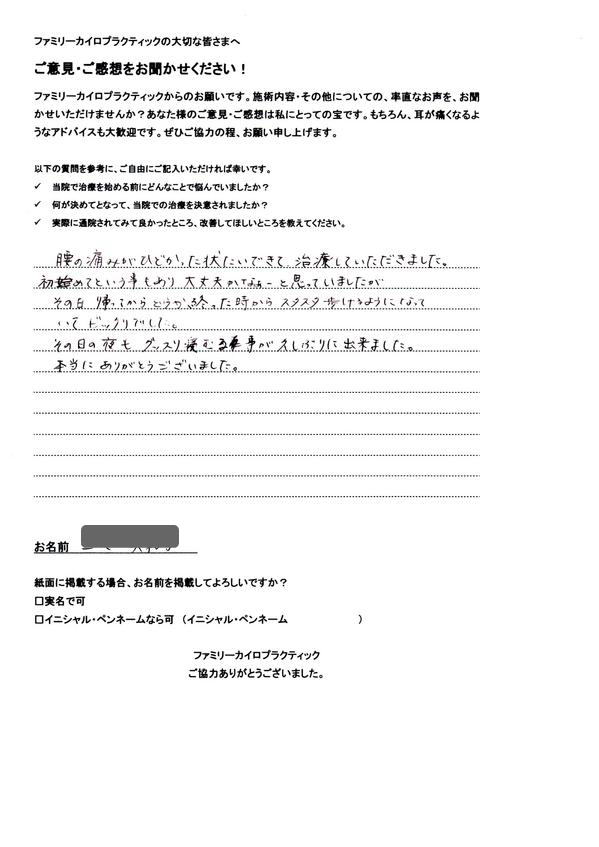 ファミリーカイロプラクティックの大切な皆さまへ
ご意見・ご感想をお聞かせください！
ファミリーカイロプラクティックからのお願いです。施術内容・その他についての、率直なお声を、お聞
かせいただけませんか？あなた様のご意見・ご感想は私にとっての宝です。もちろん、耳が痛くなるよ
うなアドバイスも大歓迎です。ぜひご協力の程、お願い申し上げます。
以下の質問を参考に、ご自由にご記入いただければ幸いです。
✓ 当院で治療を始める前にどんなことで悩んでいましたか？
✓ 何が決めてとなって、当院での治療を決意されましたか？
✓ 実際に通院されてみて良かったところ、改善してほしいところを教えてください。
腰の痛みがひどかった状たいできて 治療していただきました。
初始めてという事もあり 大丈夫かなぁーと思っていましたが
その日 帰ってから 終った時から スタスタ歩けるようになって
いて ビックリでした。
その日の夜も グッスリ寝む事が久しぶりに出来ました。
本当に ありがとうございました。
お名前
紙面に掲載する場合、お名前を掲載してよろしいですか？
□実名で可
□イニシャル・ペンネームなら可 （イニシャル・ペンネーム ）
ファミリーカイロプラクティック
ご協力ありがとうございました。